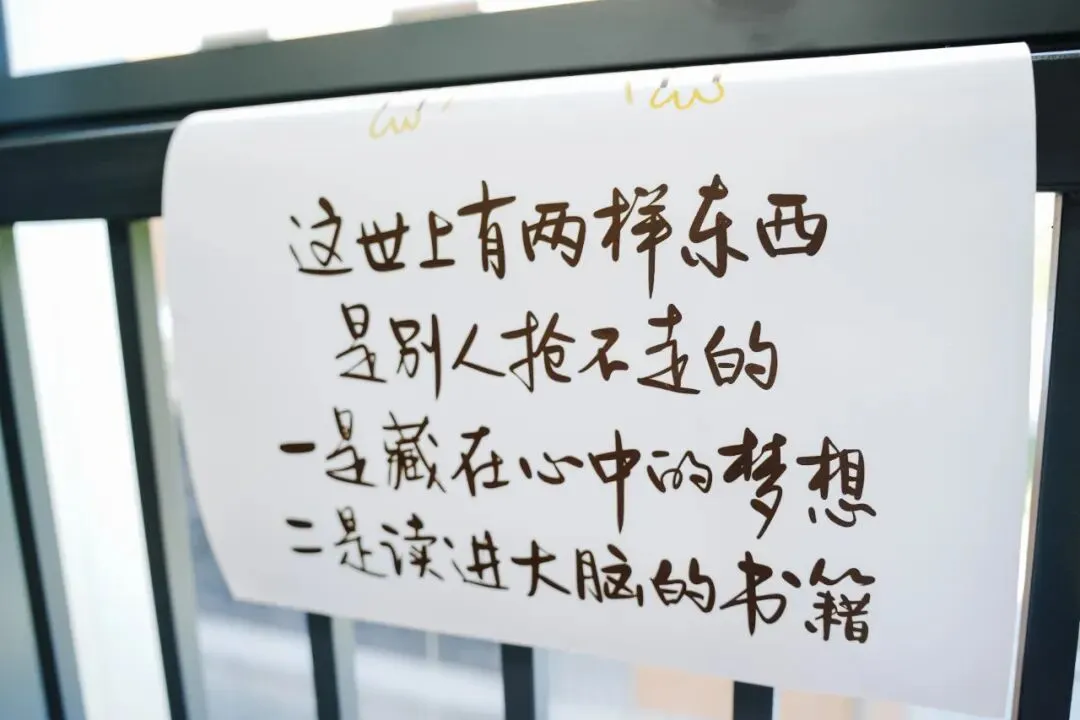 这世上有两样东西
是别人抢不走的
一是藏在心中的梦想
二是读进大脑的书籍